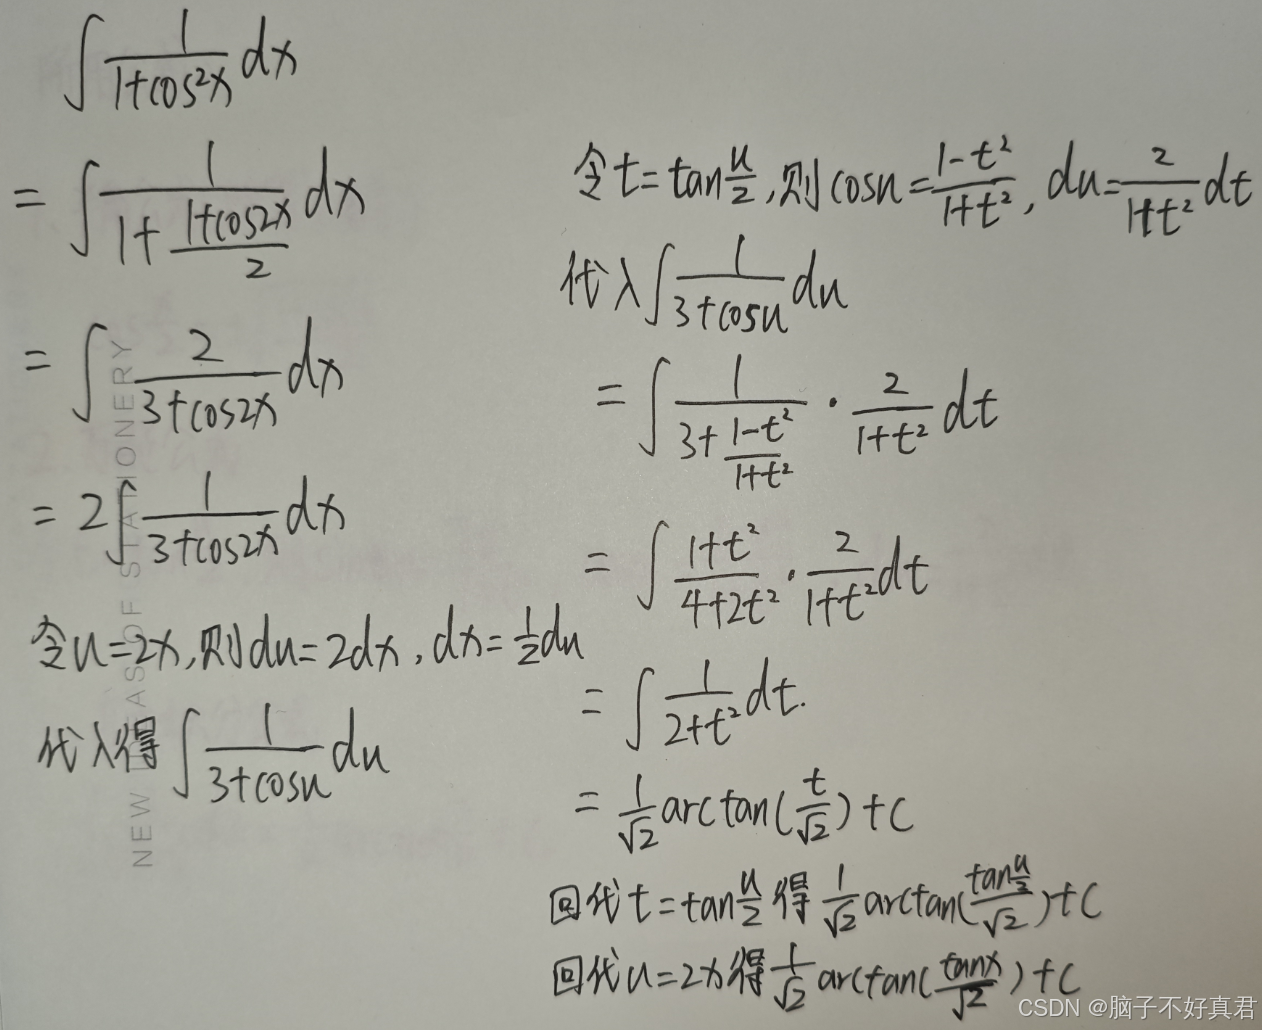 ∫ 1/(1+cos²x) dx
= ∫ 1/(1+(1+cos2x)/2) dx
= ∫ 2/(3+cos2x) dx
= 2∫ 1/(3+cos2x) dx
令u=2x,则du=2dx,dx=½du
代入得∫ 1/(3+cosu) du
令t=tan u/2,则cosu=(1-t²)/(1+t²),du=2/(1+t²) dt
代入∫ 1/(3+cosu) du
= ∫ 1/(3+(1-t²)/(1+t²)) · 2/(1+t²) dt
= ∫ (1+t²)/(4+2t²) · 2/(1+t²) dt
= ∫ 1/(2+t²) dt.
= 1/√2 arctan(t/√2)+C
回代t=tan u/2 得 1/√2 arctan((tan u/2)/√2)+C
回代u=2x得 1/√2 arctan(tanx/√2)+C
NEW IDEAS OF STATIONERY
CSDN @脑子不好真君